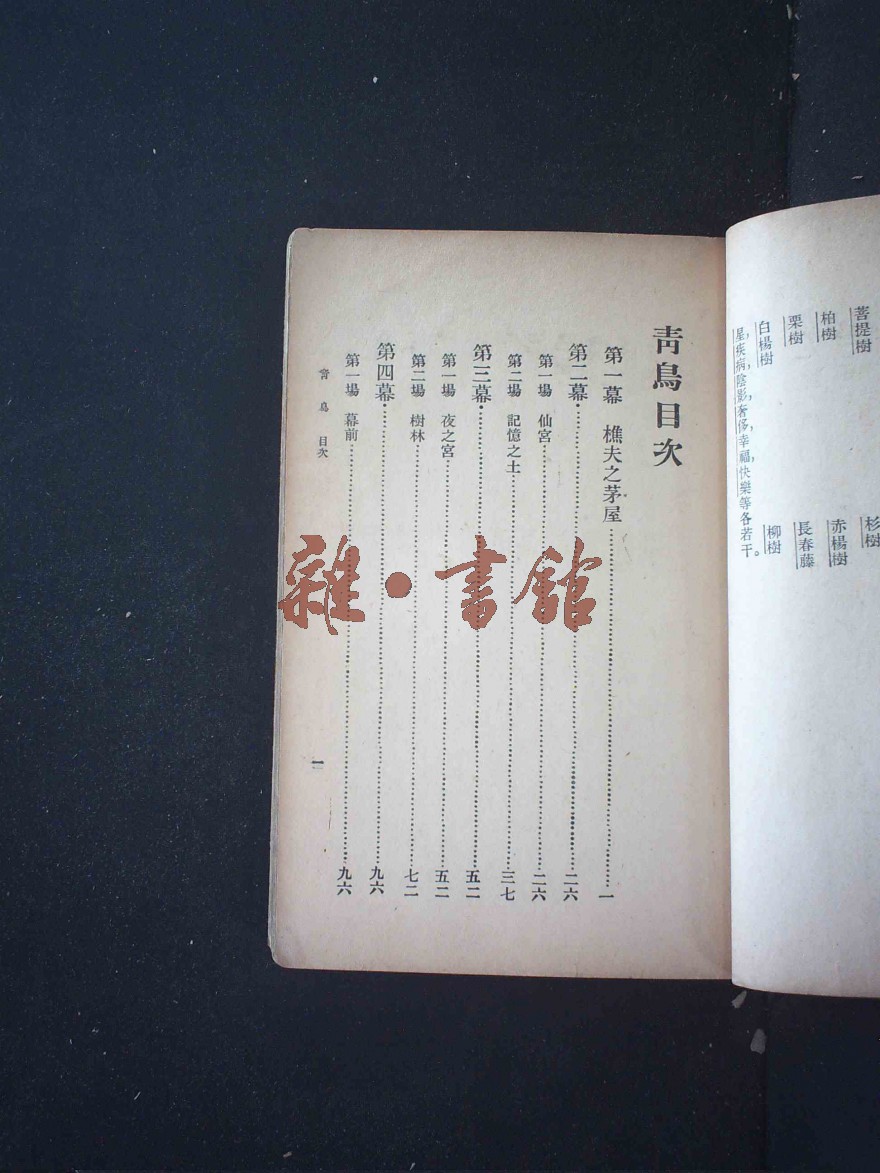 菩提樹
杉樹
柏樹
赤楊樹
栗樹
長春藤
白楊樹
柳樹
星,疾病,陰影,奢侈,幸福,快樂等各若干。
靑鳥目次
第一幕 樵夫之茅屋……一
第二幕……二六
第一場 仙宮……二六
第二場 記憶之土……三七
第三幕……五二
第一場 夜之宮……五二
第二場 樹林……七二
第四幕……九六
第一場 幕前……九六
靑鳥 目次
一
雜·書館